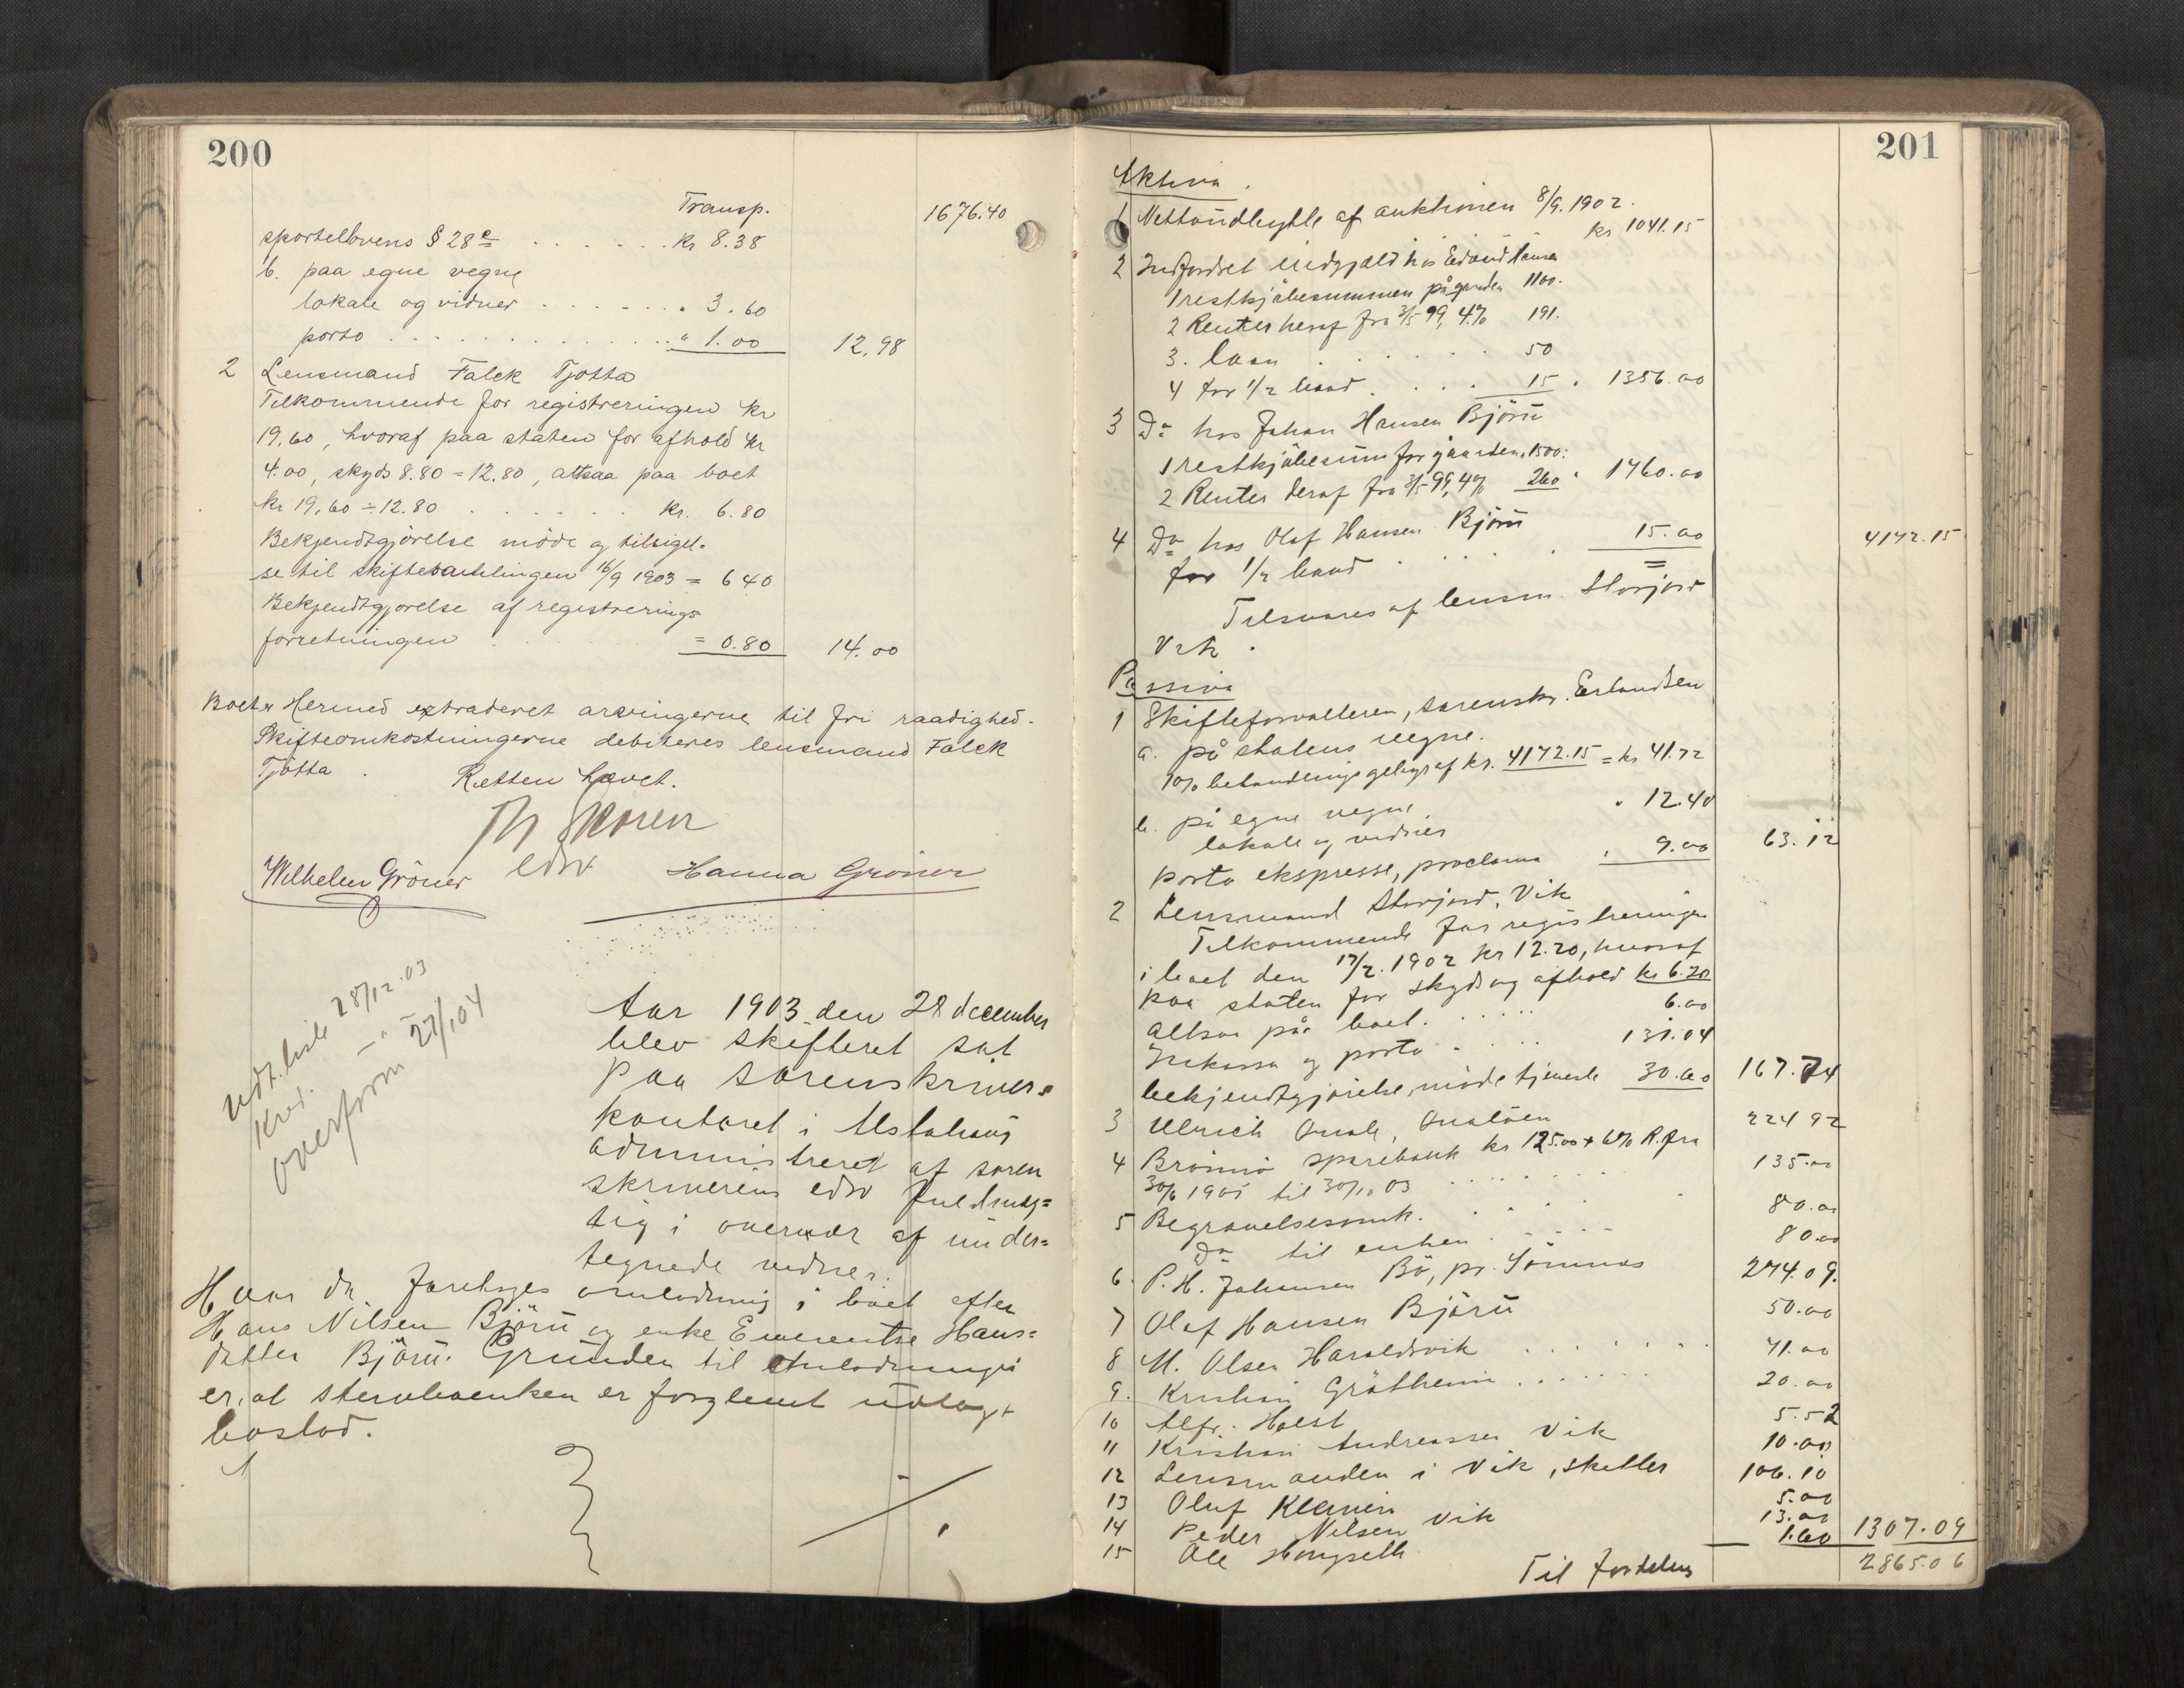 200
Transp. 1676.40
sportellovens § 28 c . . . . . . . kr 8.38
b. paa egne vegne
lokale og vidner . . . . . . . " 3.60
porto . . . . . . . . . . . . . . " 1.00 12.98
2 Lensmand Falck Tjøtta
Tilkommende for registreringen kr
19.60, hvoraf paa staten for afhold kr
4.00, skyds 8.80 = 12.80, altsaa paa boet
kr 19.60 ÷ 12.80 . . . . . . kr. 6.80
Bekjendtgjørelse møde og tilsigel-
se til skiftesamlingen 16/9 1903 = 6 40
Bekjendtgjørelse af registrerings
forretningen = 0.80 14.00
Boet er Hermed extraderet arvingerne til fri raadighed.
Skifteomkostningerne debiteres lensmand Falck
Tjøtta.
Retten hævet.
Th Skoren
edsv
Wilhelm Gröner Hanna Gröner
udt. liste 28/12.03
Kred. — " —
overform 27/1 04
Aar 1903 den 28 december
blev skifteret sat
paa sorenskriver-
kontoret i Alstahaug
administreret af soren
skriverens edsv fuldmæg=
tig i overvær af under=
tegnede vidner.
Hvor da foretoges omlodning i boet efter
Hans Nilsen Bjørü og enke Emerentse Hans=
datter Bjørü. Grunden til omlodningen
er, at stervboenken er forglemt udlagt
boslod.
201
Aktiva.
1 Nettoudbytte af auktionen 8/9.1902.
kr 1041.15
2 Indfordret indgjæld hos Edvard Hansen
1 restkjøbesummen på gaarden 1100.
2 Renter heraf fra 3/5 99, 4% 191.
3. laan . . . . . . 50
4 for 1/2 baad . . . . 15 " 1356.00
3 Do hos Johan Hansen Bjørü
1 restkjøbesum for gaarden, 1500.
2 Renter deraf fra 3/5 99, 4% 260 " 1760.00
4 Do hos Olaf Hansen Bjørü
for 1/2 baad . . . . 15.00 4172.15
Tilsvares af lensm. Storjord
Vik.
Passiva
1 Skifteforvalteren, sorenskr. Erlandsen
a. på statens vegne.
1% behandlingsgebyr af kr. 4172.15 = kr 41.72
b. på egne vegne
lokale og vidner " 12.40
porto ekspresse, proclama " 9.00 63.12
2 Lensmand Storjord, Vik
Tilkommende for registreringen
i boet den 17/2.1902 kr 12.20, hvoraf
paa staten for skyds og afhold kr 6.20
altsaa på boet . . . . . 6.00
Inkasso og porto . . . . 131.04
bekjendtgjørelse, møde tjeneste 30.00 167.74
3 Ulrich Qvale, Qvaløen 224 92
4 Brønnø sparebank kr 125.00 + 6% R. fra
30/6 1901 til 30/10 03 . . . . . . 135.00
5 Begravelsesomk. . . . . 80.00
Do til enken . . . . . 80.00
6. P. H. Johansen Bö, pr. Sömnes 274.09.
7 Olaf Hansen Bjørü 50.00
8 M. Olsen Haroldsvik . . . . . . . 41.00
9. Kristian Gröttheim . . . . . . 20.00
10 Alfr. Holst 5.52
11 Kristian Andreassen Vik 10.00
12 Lensmanden i Vik, skatter 106.10
13 Oluf Klavin 5.00
14 Peder Nilsen Vik 13.00
15 Ole Hongseth 1.60 1307.09
Til fordeling 2865.06